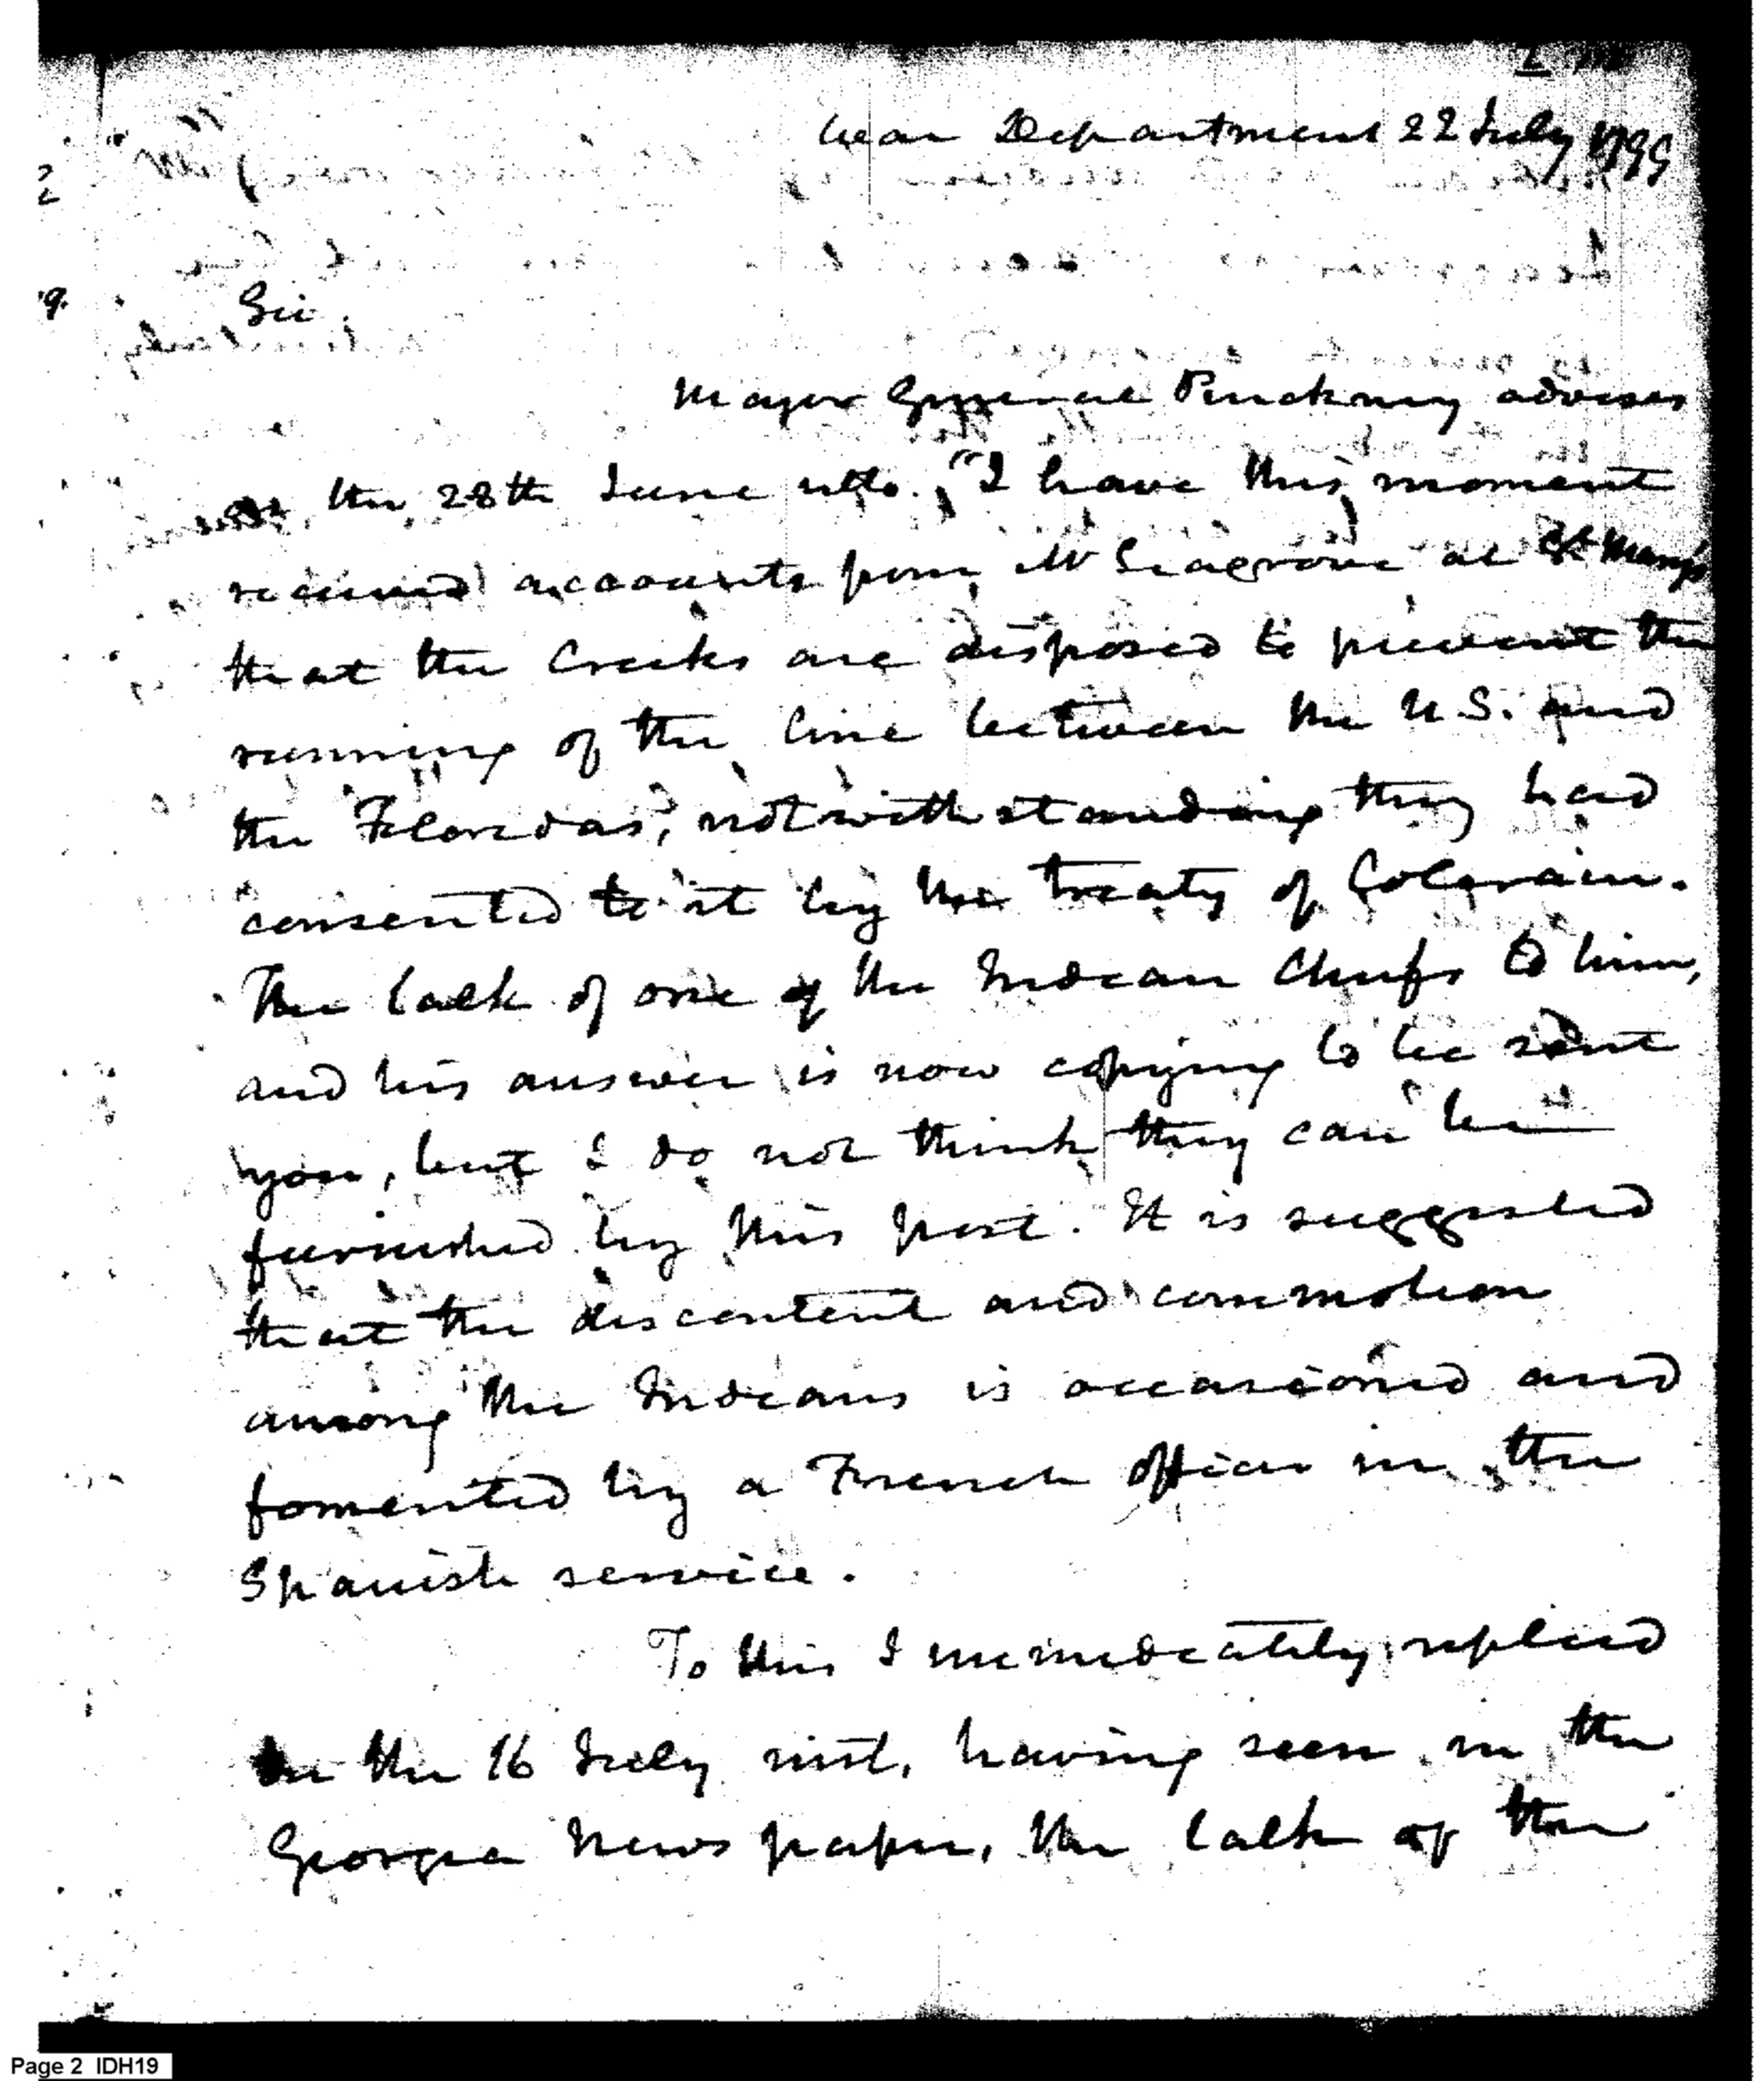 War Department 22 July 1799
Sir.
Major General Pinckney advises
the 28th June ulto. "I have this moment
received accounts from Mr Seagrove at St Mary's
that the Creeks are disposed to prevent the
running of the line between the U.S. and
the Floredas, notwithstanding they had
consented to it by the treaty of Colerain.
The talk of one of the Indian Chiefs to him,
and his answer is now copying to be sent
you, but I do not think they can be
furnished by this post. It is suggested
that the discontent and commotion
among the Indians is occasioned and
fomented by a French officer in the
Spanish service.
To this I immediately replied
the 16 July inst, having seen in the
Georgia News paper, the talk of the
Page 2 IDH19